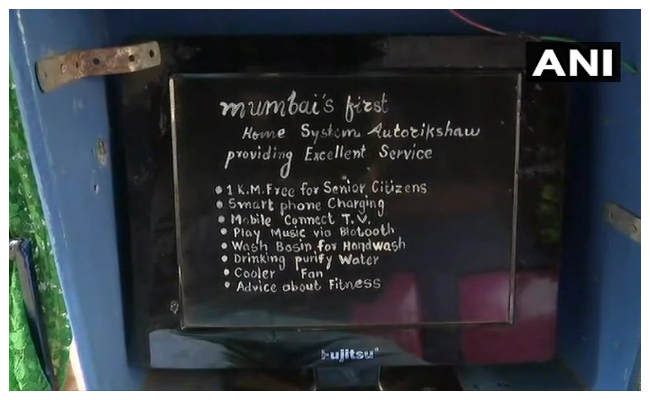 ANI
mumbai's first
Home System Autorikshaw
providing Excellent Service
• 1 K.M. Free for Senior Citizens
• Smart phone Charging
• Mobile Connect T.V.
• Play Music via Blotooth
• Wash Basin for Handwash
• Drinking purify Water
• Cooler Fan
• Advice about Fitness
Fujitsu